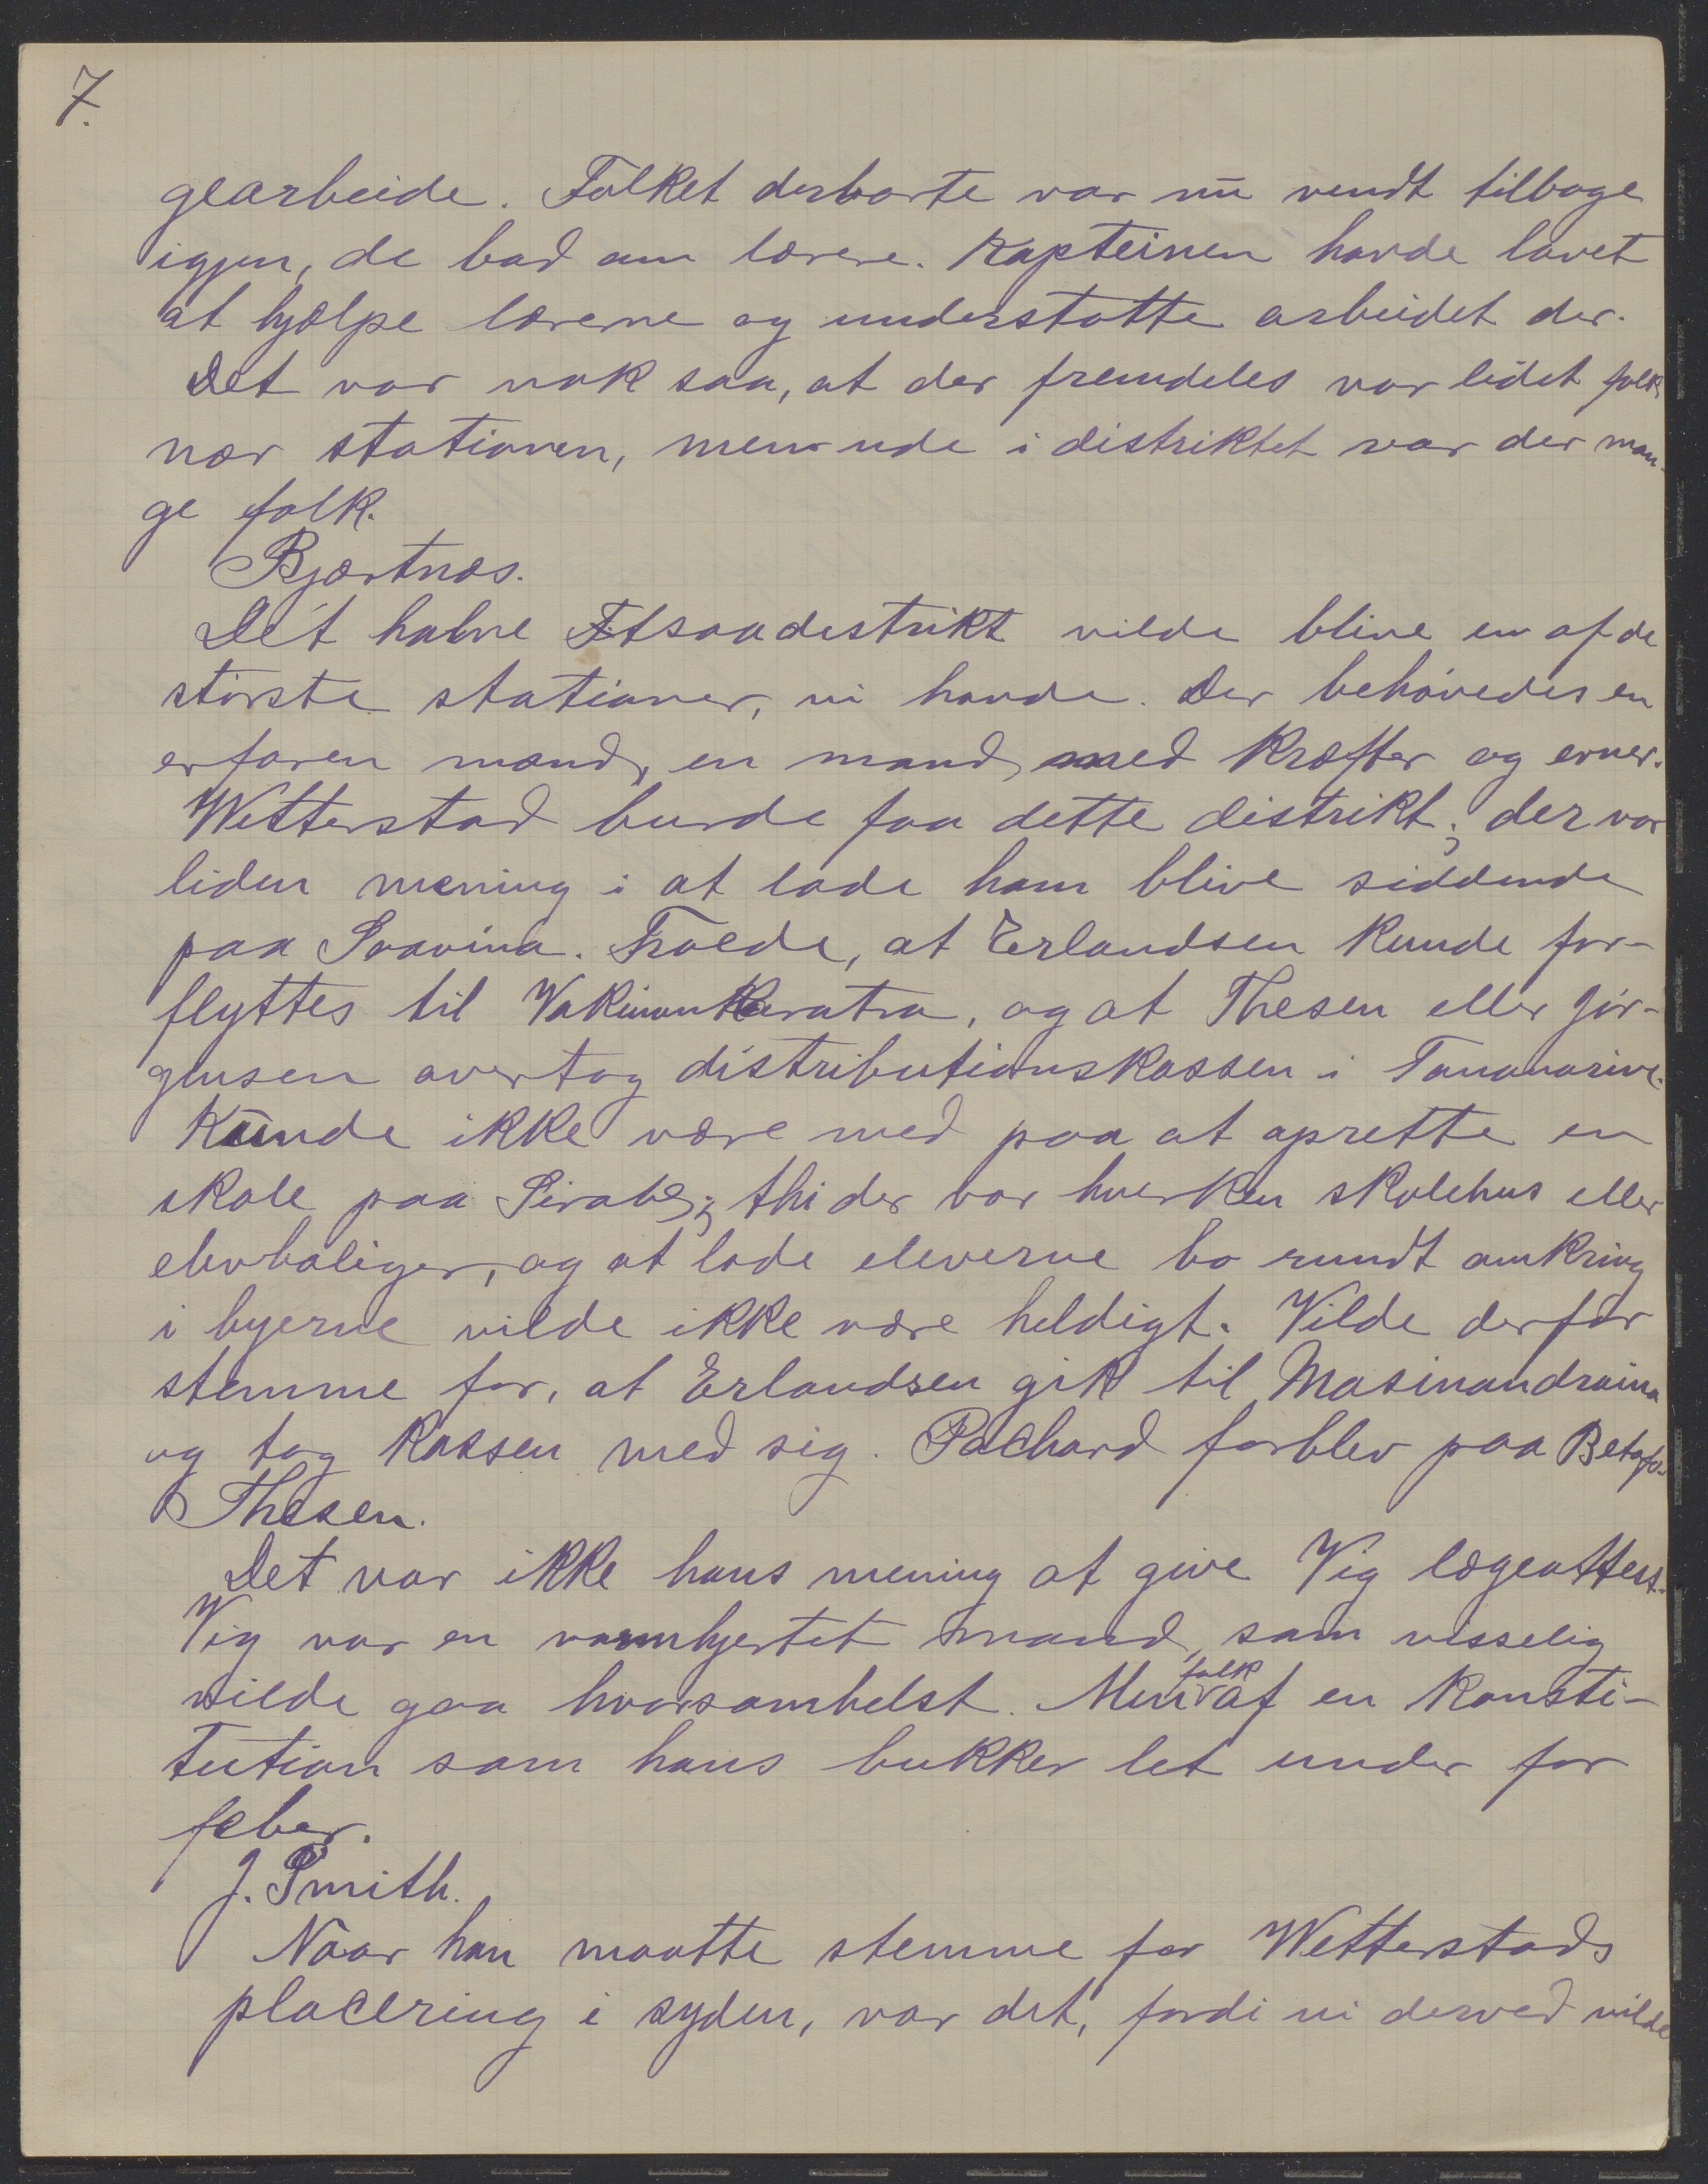 7.
gearbeide. Folket derborte var nu vendt tilbage
igjen, de bad om lærere. Kapteinen havde lovet
at hjælpe lærerne og understøtte arbeidet der.
Det var nok saa, at der fremdeles var lidet folk
nær stationen, men ude i distriktet var der man-
ge folk.
Bjærtnæs.
Det halve Itsaadistrikt vilde blive en af de
største stationer, vi havde. Der behøvedes en
erfaren mand, en mand med kræfter og evner.
Wetterstad burde faa dette distrikt; der var
liden mening i at lade ham blive siddende
paa Soavina. Troede, at Erlandsen kunde for-
flyttes til Vakinankaratra, og at Thesen eller Jør-
gensen overtog distributionskassen i Tananarive.
Kunde ikke være med paa at oprette en
skole paa Sirabe; thi der var hverken skolehus eller
elevboliger, og at lade eleverne bo rundt omkring
i byerne vilde ikke være heldigt. Vilde derfor
stemme for, at Erlandsen gik til Masinandraina
og tog kassen med sig. Pochard forblev paa Betafo.
Thesen.
Det var ikke hans mening at give Vig lægeattest.
Vig var en varmhjertet mand, som visselig
vilde gaa hvorsomhelst. Men folk af en konsti-
tution som hans bukker let under for
feber.
J. Smith.
Naar han maatte stemme for Wetterstads
placering i syden, var det, fordi vi derved vilde